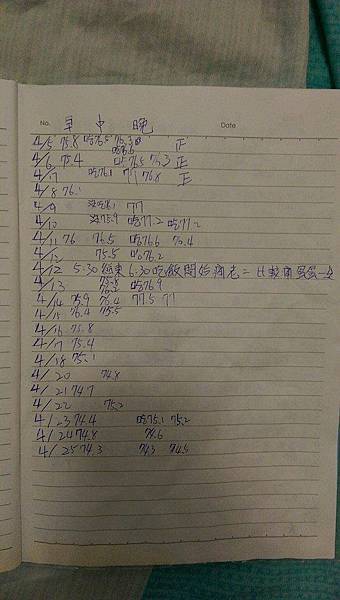 No.
Date
早 中 晚
4/5 75.8 吃76.5 76.3 正
吃76.6
4/6 75.4 吃76.5 76.3 正
4/7 吃76.1 77 76.8 正
4/8 76.1
4/9 77
4/10 75.9 吃77.2 吃77.2
4/11 76 76.5 吃76.6 76.4
4/12 75.5 吃76.2
4/12 5:30 結束 6:30吃飯開始
4/13 75.8 吃76.9
76.2
4/14 75.9 76.4 77.5 77
4/15 76.4 75.5
4/16 75.8
4/17 75.4
4/18 75.1
4/20 74.8
4/21 74.7
4/22 75.2
4/23 74.4 吃75.1 75.2
4/24 74.8 74.6
4/25 74.3 74.3 74.5